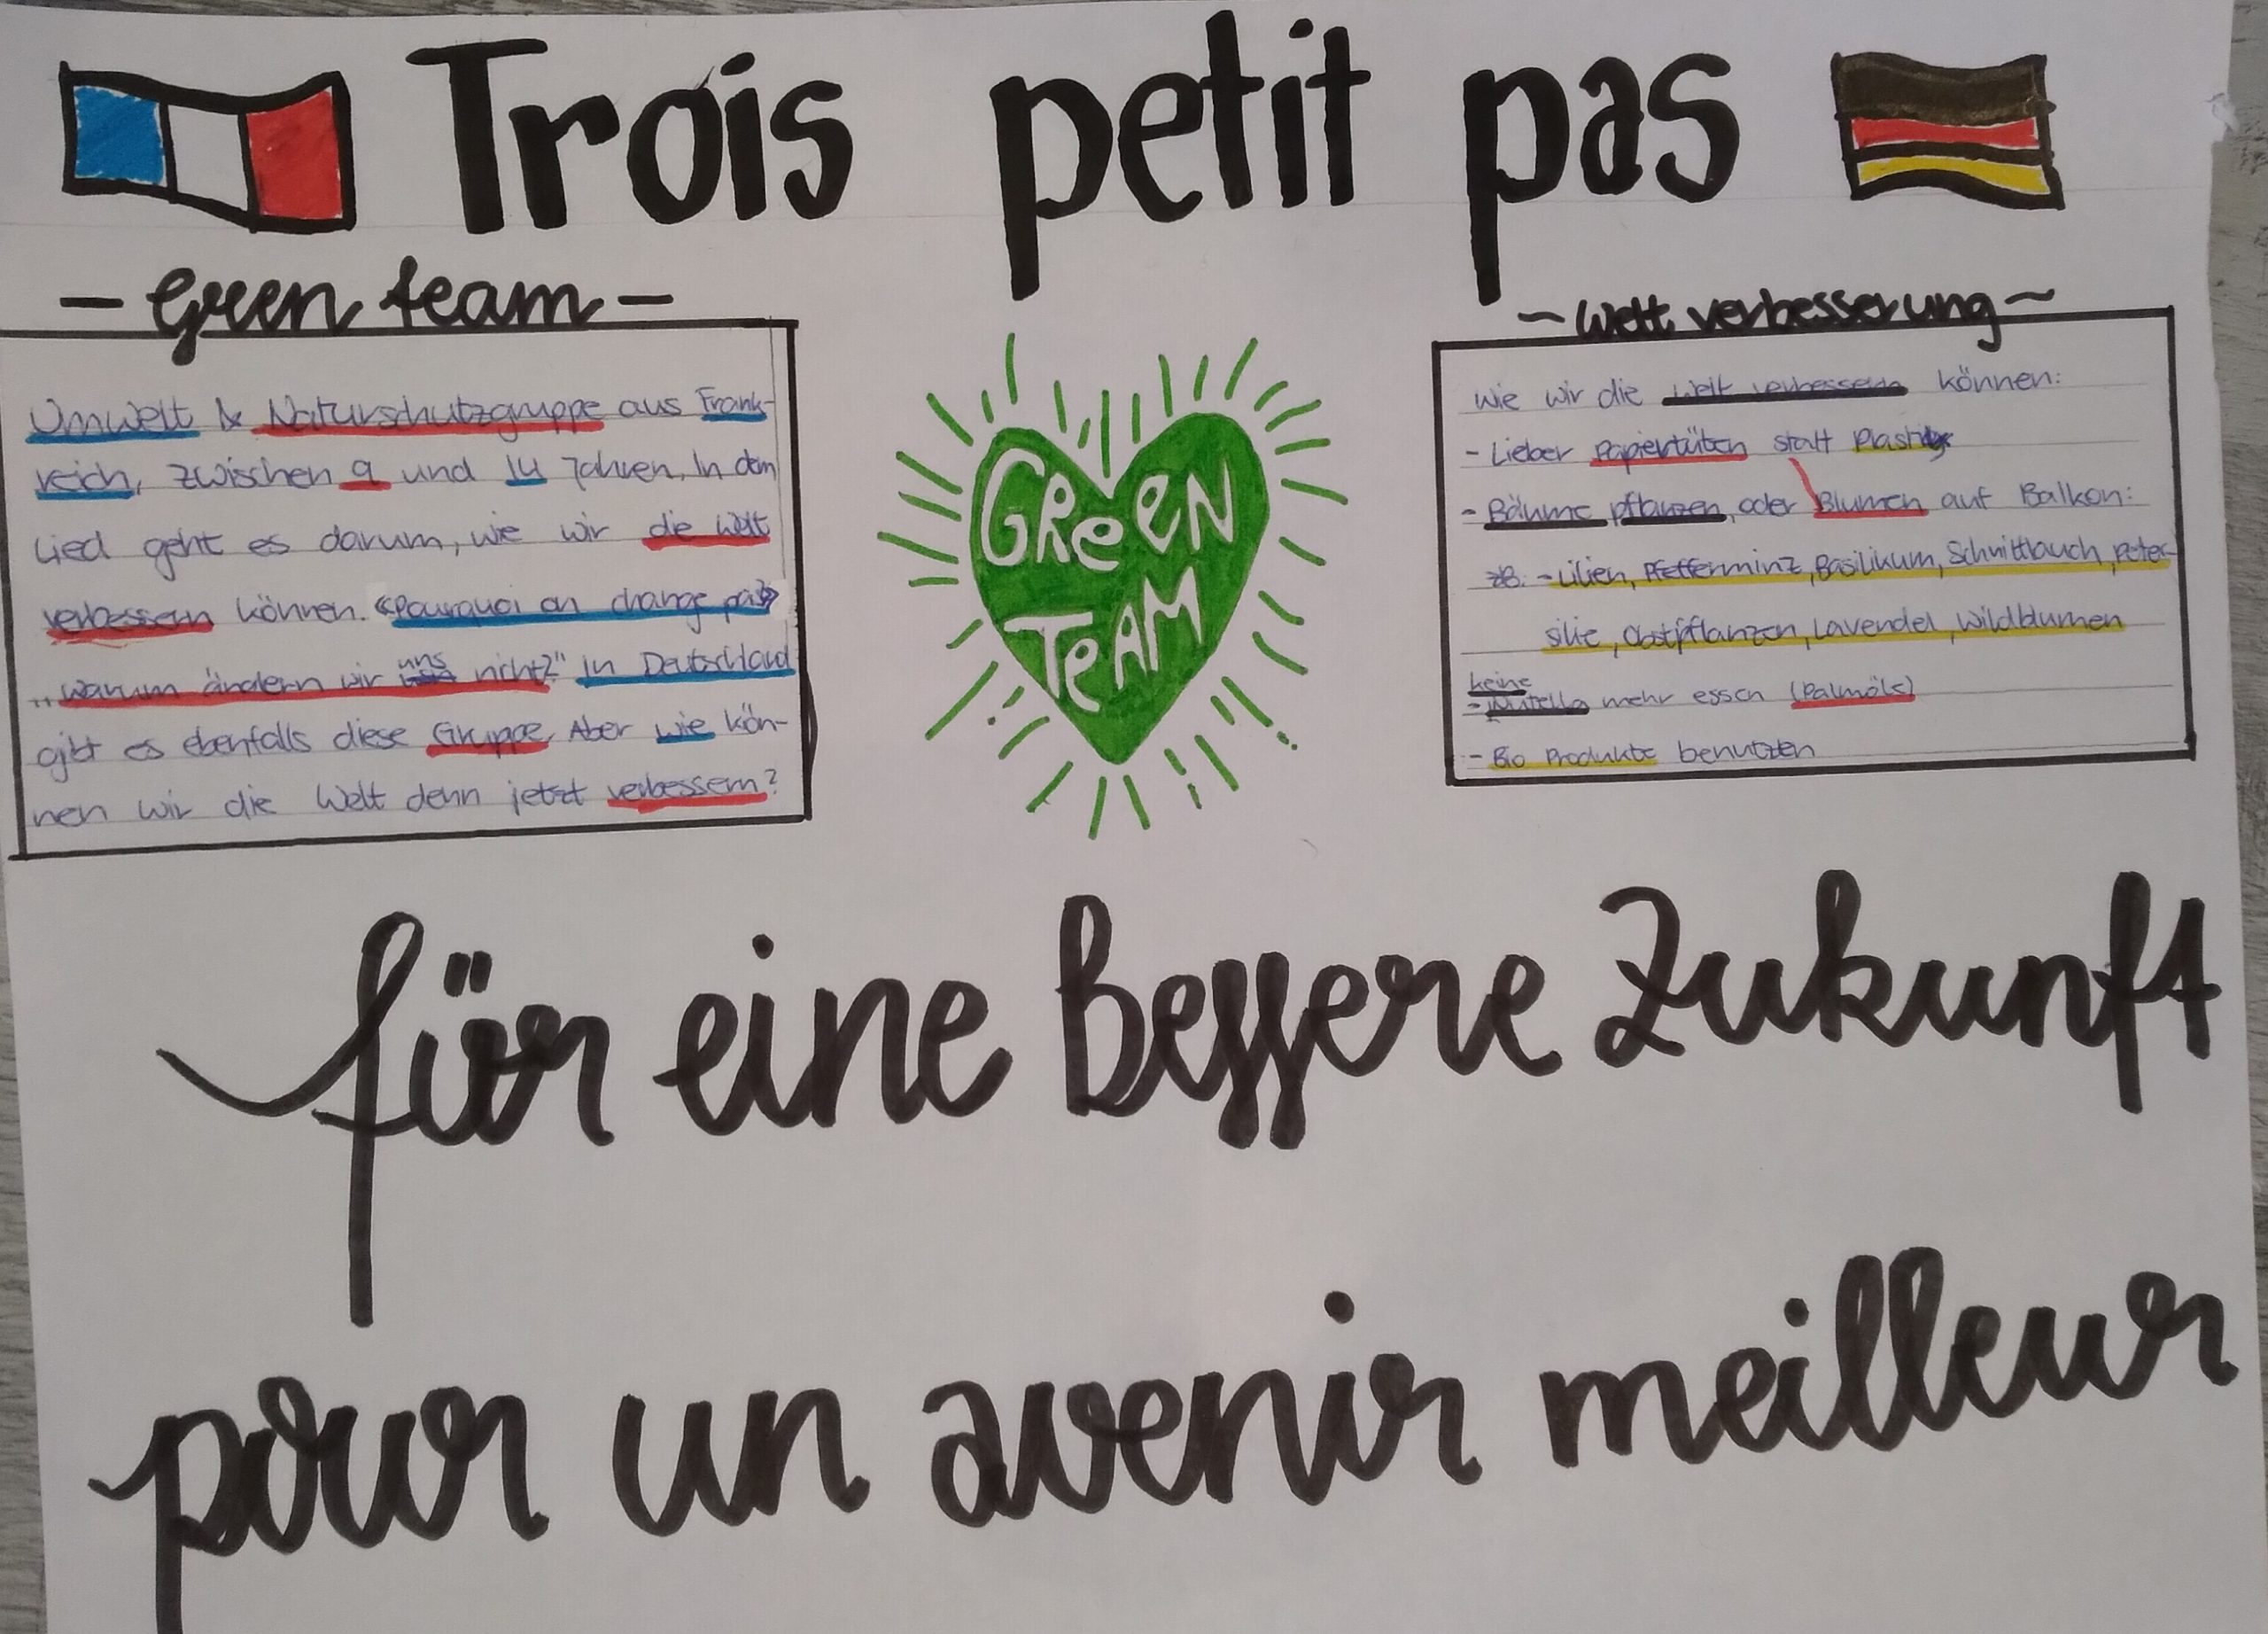 Trois petit pas
- Green team -
Umwelt & Naturschutzgruppe aus Frank-
reich, zwischen 9 und 14 Jahren, In dem
Lied geht es darum, wie wir die Welt
verbessern können. «Pourquoi on change pas»
„warum ändern wir uns nicht?" In Deutschland
gibt es ebenfalls diese Gruppe, Aber wie kön-
nen wir die Welt denn jetzt verbessern?
GReeN
TeAM
~ Welt verbesserung ~
Wie wir die Welt verbessern können:
- Lieber Papiertüten statt Plastik
- Bäume pflanzen, oder Blumen auf Balkon:
zB. - Lilien, Pfefferminz, Basilikum, Schnittlauch, Peter-
silie, Obstpflanzen, Lavendel, Wildblumen
keine
- Nutella mehr essen (Palmöls)
- Bio Produkte benutzen
für eine Bessere Zukunft
pour un avenir meilleur